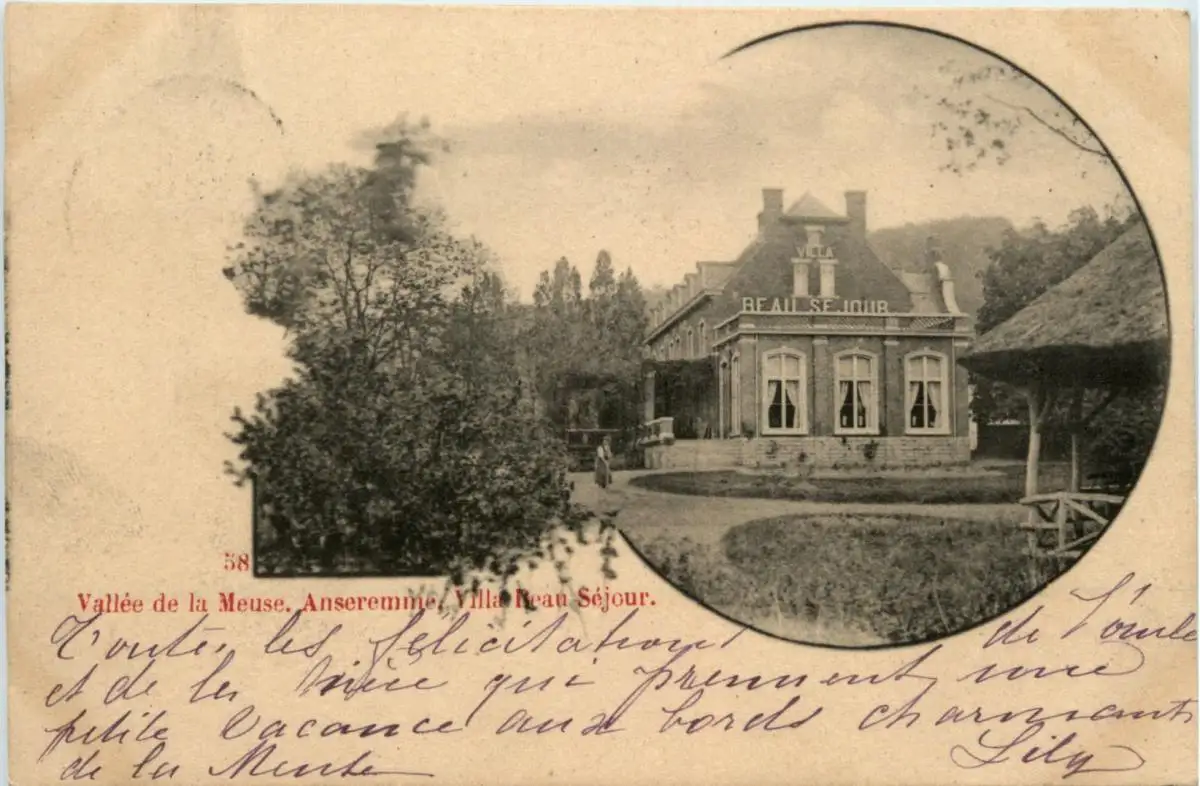 VILLA
BEAU SEJOUR
58
Vallée de la Meuse. Anseremme. Villa Beau Séjour.
Toutes les félicitations de l'oncle
et de la Nièce qui prennent une
petite vacance aux bords charmants
de la Meuse Lily